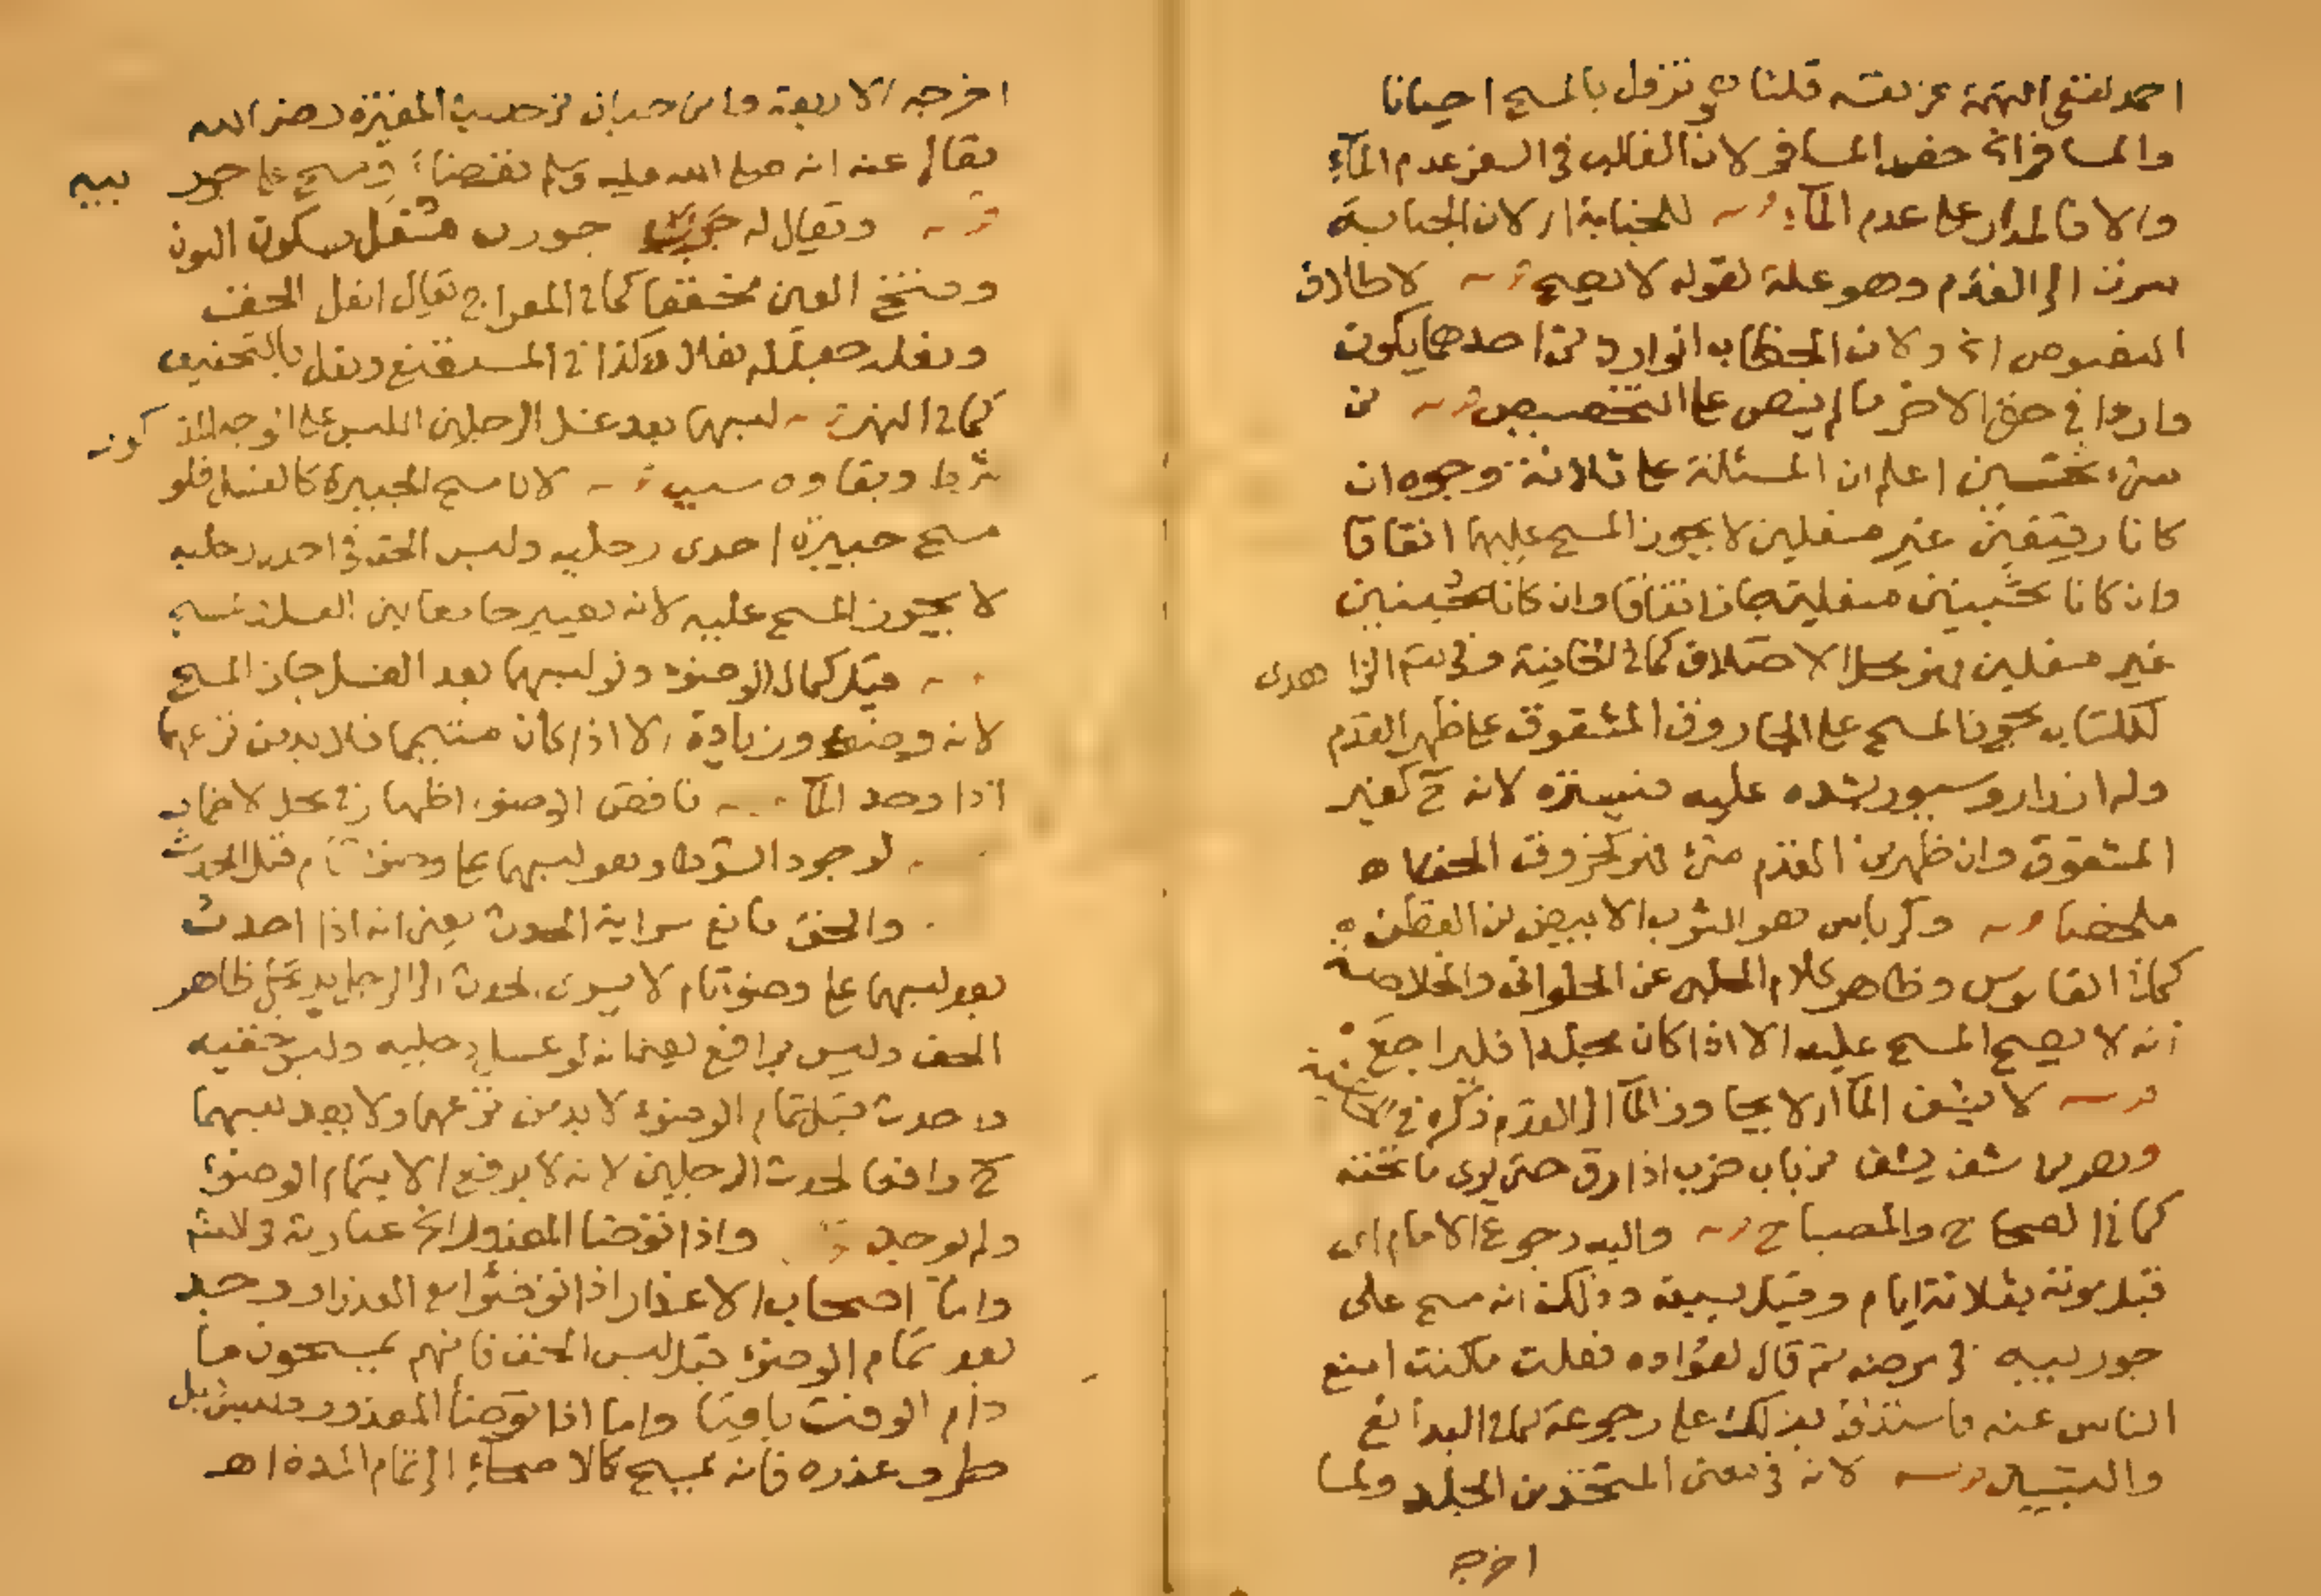 احمد لنفي التهمة عن نفسه قلنا تزول بالمسح احيانا
والمسافر الخ خص المسافر لان الغالب في السفر عدم الماء
والا فالمدار على عدم الماء قوله للجنابة ار لان الجنابة
سرت الى القدم وهو علة لقوله لا يصح قوله لاطلاق
النصوص الخ ولان الخطاب الوارد في احدهما يكون
واردا في حق الاخر مالم ينص على التخصيص قوله من
شيء ثخينين اعلم ان المسئلة على ثلاثة وجوه ان
كانا رقيقين غير منعلين لا يجوز المسح عليهما اتفاقا
وان كانا ثخينين منعلين جاز اتفاقا وان كانا ثخينين
غير منعلين فهو محل الاختلاف كما في الخانية وفي الزا هدى
المسح على الجاروق المشقوق على ظهر القدم
وله ازرار وسيور يشده عليه فيستره لانه ح كغير
المشقوق وان ظهر من القدم شئ فهو كخروق الخف اه
ملخصا قوله وكرباس هو الثوب الابيض من القطن
كما في القاموس وظاهر كلام الحلبي عن الحلواني والخلاصة
انه لا يصح المسح عليه الا اذا كان مجلدا فليراجع
قوله لا يشف الماء ار لا يجاوز الماء الى القدم ذكره في
وهو من شف يشف من باب ضرب اذا رق حتى يرى ما تحته
كما في الصحاح والمصباح قوله واليه رجوع الامام اى
قبل موته بثلاثة ايام وقيل بسبعة وذلك انه مسح على
جوربيه في مرضه ثم قال لعواده فعلت ما كنت امنع
الناس عنه فاستدل بذلك على رجوعه كما في البدائع
والتبيين قوله لانه في معنى المتخذ من الجلد ولما
اخرجه
اخرجه الاربعة وابن حبان من حديث المغيرة رضي الله
تعالى عنه انه صلى الله عليه وسلم توضأ ومسح على جور بيه
قوله ويقال له جورب منعل بسكون النون
وفتح العين مخففا كما في المعراج يقال انعل الخف
ونعله جعل له نعلا هكذا في المستصفى ونعل بالتخفيف
كما في النهر قوله لبسهما بعد غسل الرجلين اللبس على الوجه المذ كور
شرط وبقاوه سبب قوله لان مسح الجبيرة كالغسل فلو
مسح جبيرة احدى رجليه ولبس الخف في احدى رجليه
لا يجوز المسح عليه لانه يصير جامعا بين الغسل
قوله قبل كمال الوضوء ولو لبسهما بعد الغسل جاز المسح
لانه وضوء وزيادة الا اذا كان متيمما فلا بد من نزعهما
اذا وجد الماء قوله ناقض الوضوء اظهار في محل الاضمار
قوله لوجود الشرط وهو لبسهما على وضوء تام قبل الحدث
والخف مانع سراية الحدث يعنى انه اذا احدث
بعد لبسهما على وضوء تام لا يسرى الحدث الى الرجل بل يحل ظاهر
الخف وليس برافع يعنى انه لو غسل رجليه ولبس خفيه
واحدث قبل تمام الوضوء لا بد من نزعهما ولا يعد لبسهما
ح رافعا لحدث الرجلين لانه لا يرفع الا بتمام الوضوء
ولم يوجد قوله واذا توضأ المعذور الخ عبارته في
واما اصحاب الاعذار اذا توضئوا مع العذر او وجد
بعد تمام الوضوء قبل لبس الخف فانهم يمسحون ما
دام الوقت باقيا واما اذا توضأ المعذور ولبس قبل
طرو عذره فانه يمسح كالاصحاء الى تمام المدة اهـ